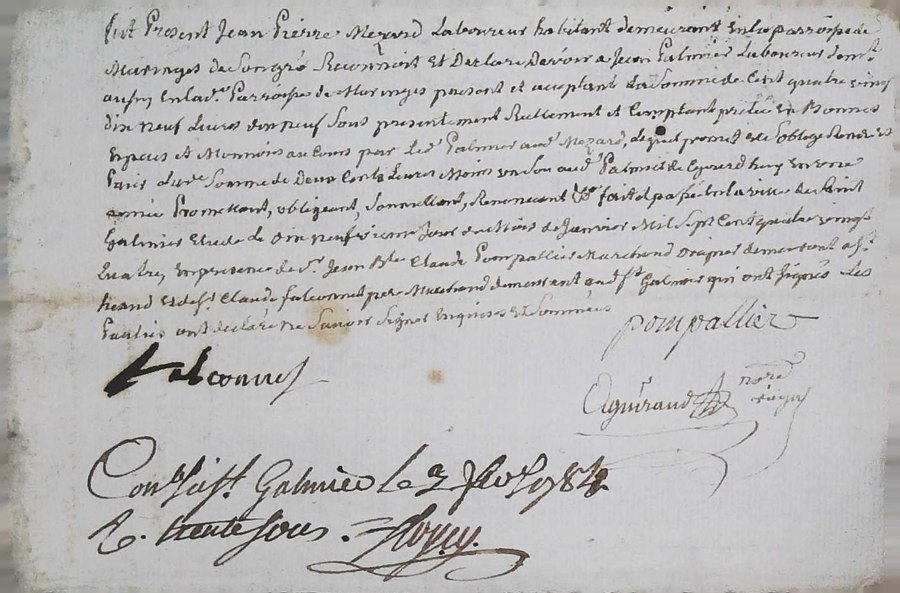 fut Present Jean Pierre Mezard Laboureur habitant demeurant en la parroisse de
Maringes de Son gré Reconnoit Et Declare Devoir a Jean Palmier Laboureur dem.t
aussy En lad.e Parroisse de Maringes present et acceptant La Somme de Cent quatre vingt
dix neuf Livres dix neuf Sous presentement Reellement et Comptant pretée En Bonnes
Especes et Monnois au Cours par Led. Palmier aud. Mezard, Lequel promet et s'oblige Rendre Et
Paier Lad.e Somme de Deux Cents Livres Moins un Sou aud. Palmier de Cejourd'huy en une
année Promettant, obligeant, Soumettant, Renoncant fait et passé En la ville de Saint
Galmier Etude Le dix neufvieme Jour du Mois de Janvier Mil Sept Cent quatre vingt
Quatre, En presence de S.r Jean B.te Claude Pompallier Marchand Drapier demeurant
et de S.r Claude falconnet pere Marchand demeurant aud. S.t Galmier qui ont Signés Les
Parties ont declaré ne Savoir Signer Enquises Et Sommées
Pompallier
falconnet
Aguiraud
no.re
royal
Con.lé à S.t Galmier le 784
R. trente Sous.